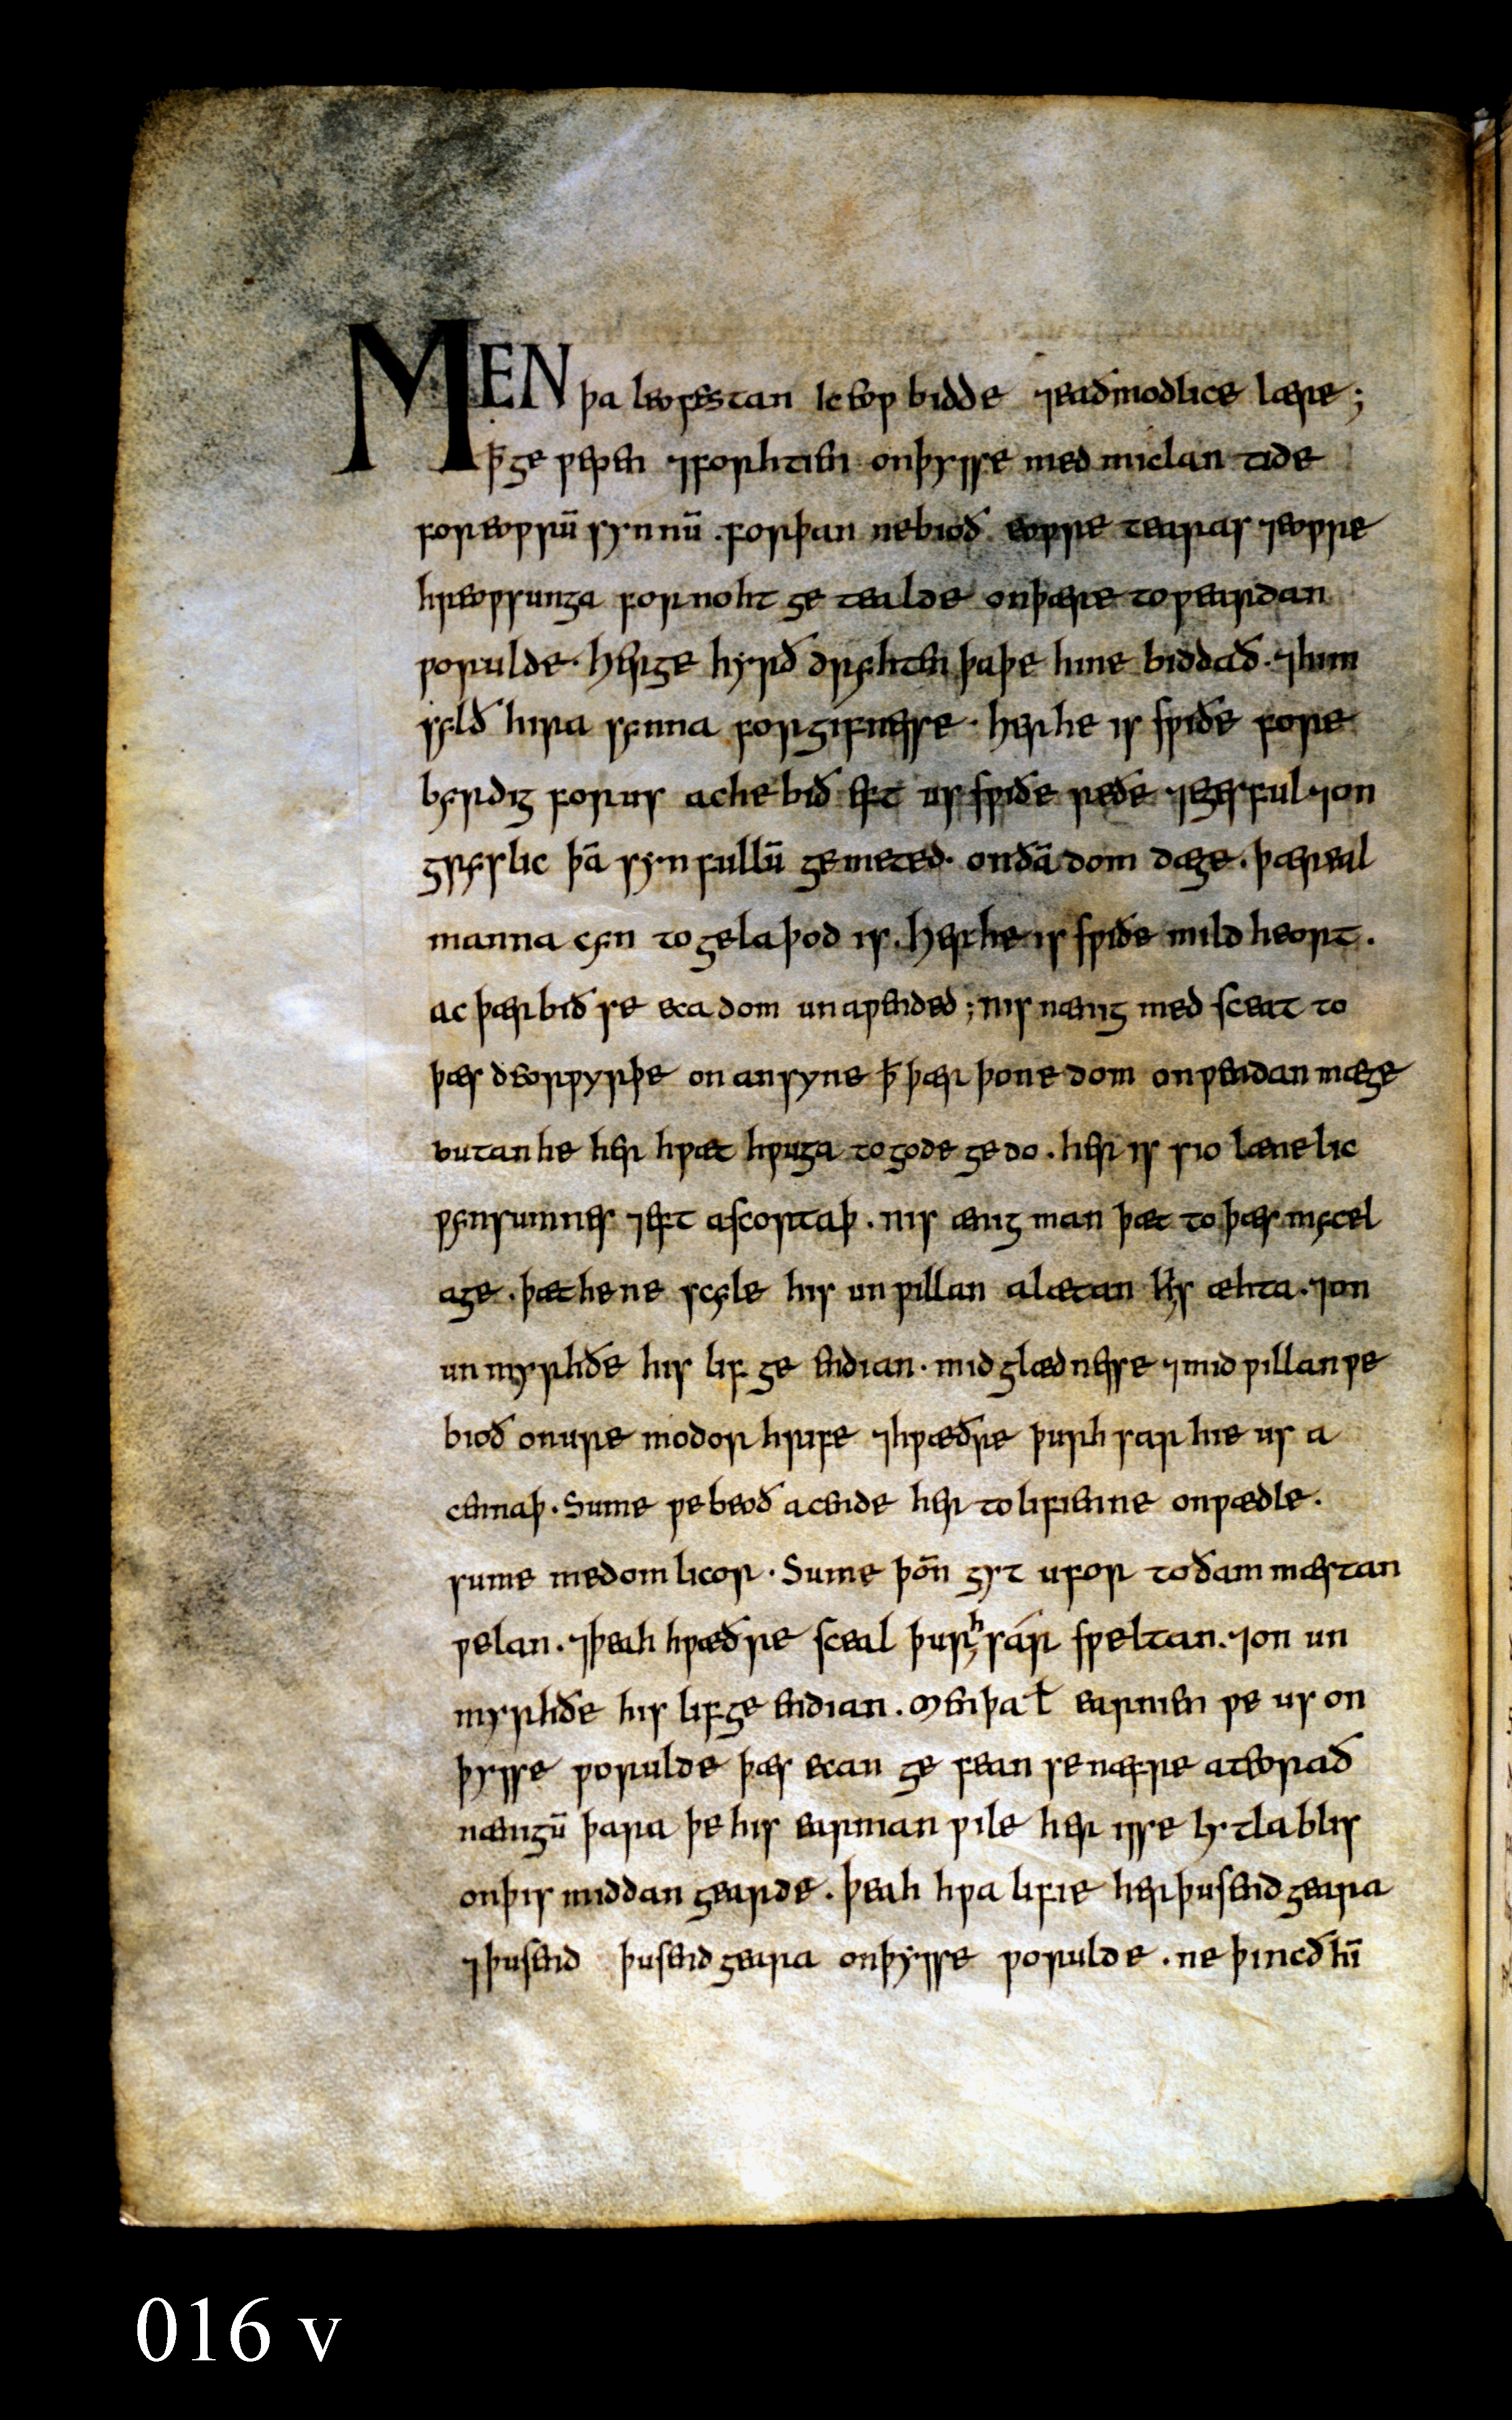 MEN þa leofestan Ic eoƿ bidde ⁊eaðmodlice lære;
ꝥ ge ƿepen ⁊forhtien onþysse med miclan tide
for eoƿrū synnū . forþan nebioð eoƿre tearas ⁊eoƿre
hreoƿsunga for noht ge tealde onþære toƿeardan
ƿorulde · her ge hyrð dryhten þaþe hine biddað · ⁊him
sylð hira synna forgifnesse · her he is sƿiðe fore
byrdig forus ac he bið eft us sƿiðe reðe ⁊egesful ⁊on
gryslic þā synfullū gemeted · onðā dom dæge . þær eal
manna cyn to gelaþod is . her he is sƿiðe mild heort .
ac þær bið se eca dom unaƿended ; nis nænig med sceat to
þæs deorƿyrþe on ansyne ꝥ þær þone dom onƿendan mæge
butan he her hƿæt hƿuga to gode ge do . her is sio lænelic
ƿynsumnes ⁊eft ascortaþ . nis ænig man þæt to þæs mycel
age . þæt he ne scyle his un ƿillan alætan his æhta . ⁊on
un myrhðe his lif ge endian . mid glædnesse ⁊mid ƿillan ƿe
bioð onure modor hrife ⁊hƿæðre þurh sar hie us a
cennaþ . Sume ƿe beoð acende her to lifienne onƿædle .
sume medomlicor . Sume þoñ gyt ufor toðam mæstan
ƿelan . ⁊þeah hƿæðre sceal þurh sár sƿeltan . ⁊on un
myrhðe his lif ge endian . Men þa ł earnien ƿe us on
þysse ƿorulde þæs ecan ge fean se næfre ateorað
nænigū þara þe his earnian ƿile her is se hƿtla blis
onþis middan gearde . þeah hƿa lifie her þusend geara
⁊þusend þusend geara onþysse ƿorulde . ne þincð hī
016 v